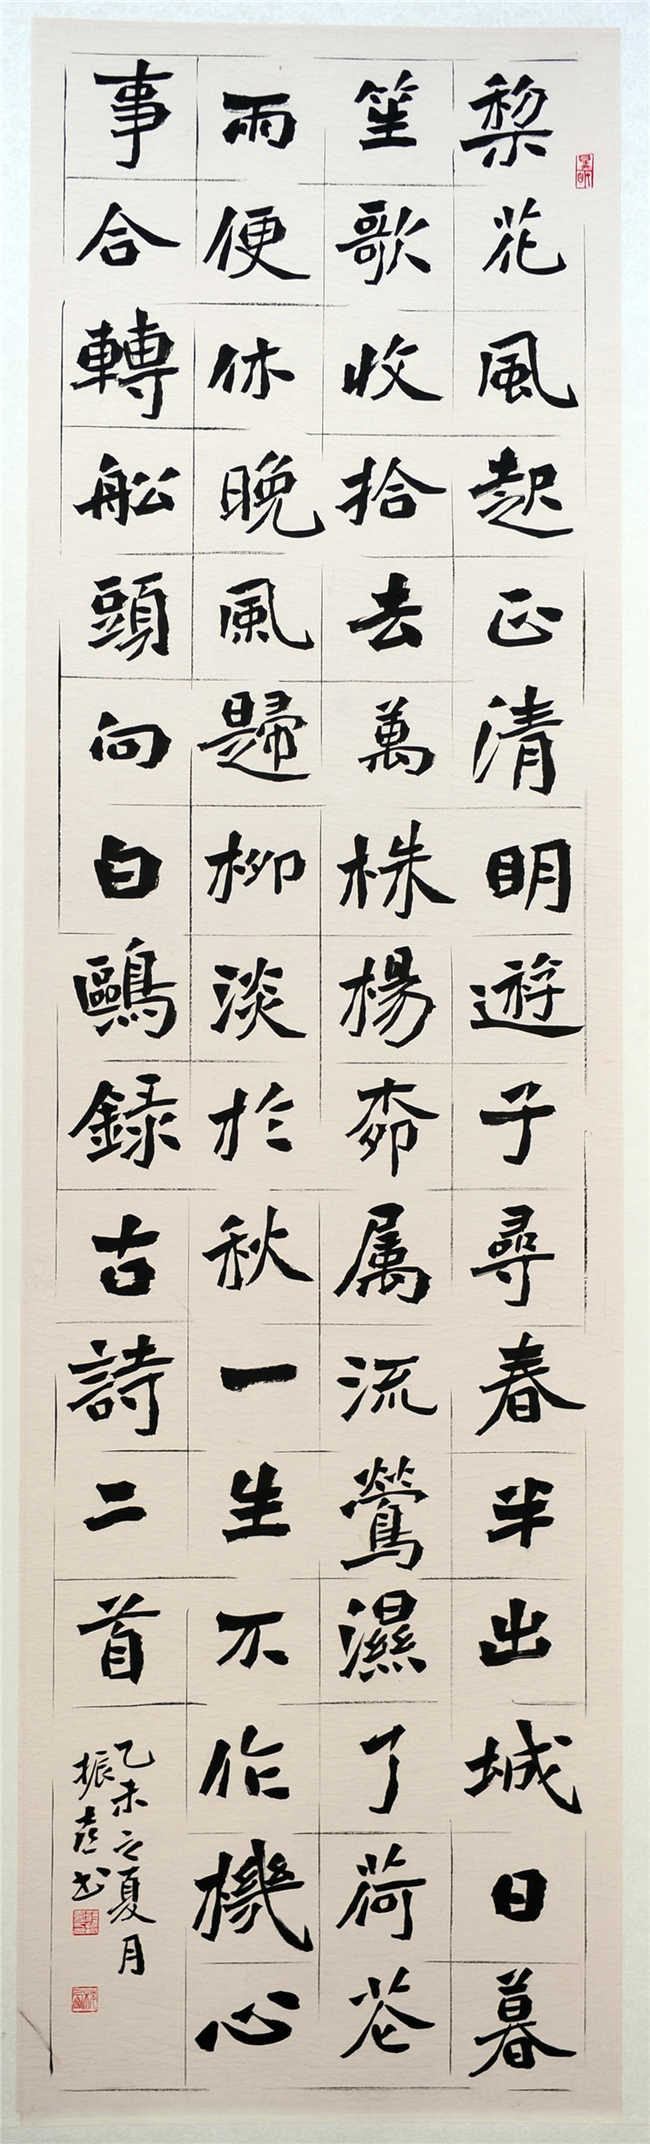 棃花風起正清明遊子尋春半出城日暮
笙歌收拾去萬株楊柳属流鶯濕了荷花
雨便休晚風歸柳淡於秋一生不作機心
事合轉舩頭向白鷗錄古詩二首
乙未之夏月
振书